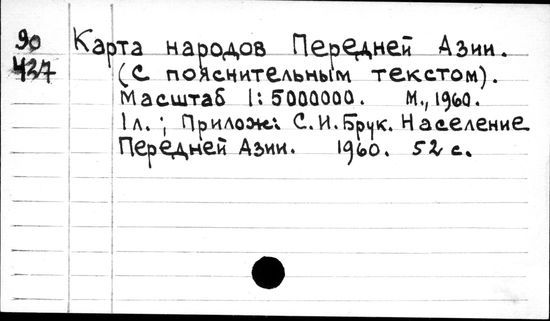 90 Карта народов Передней Азии.
427 (с пояснительным текстом).
Масштаб 1:5000000. М., 1960.
1 л.; Прилож: С.И.Брук. Население
Передней Азии. 1960. 52 с.